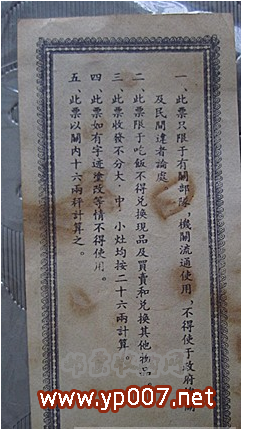 一、此票只限于有關部隊，機關流通使用，不得使于政府機關
及民間違者論處。
二、此票限于吃飯不得兑换現品及買賣和兑换其他物品。
三、此票收發不分大．中．小灶均按二十六兩計算。
四、此票如有字迹塗改等情不得使用。
五、此票以關内十六兩秤計算之。
www.yp007.net